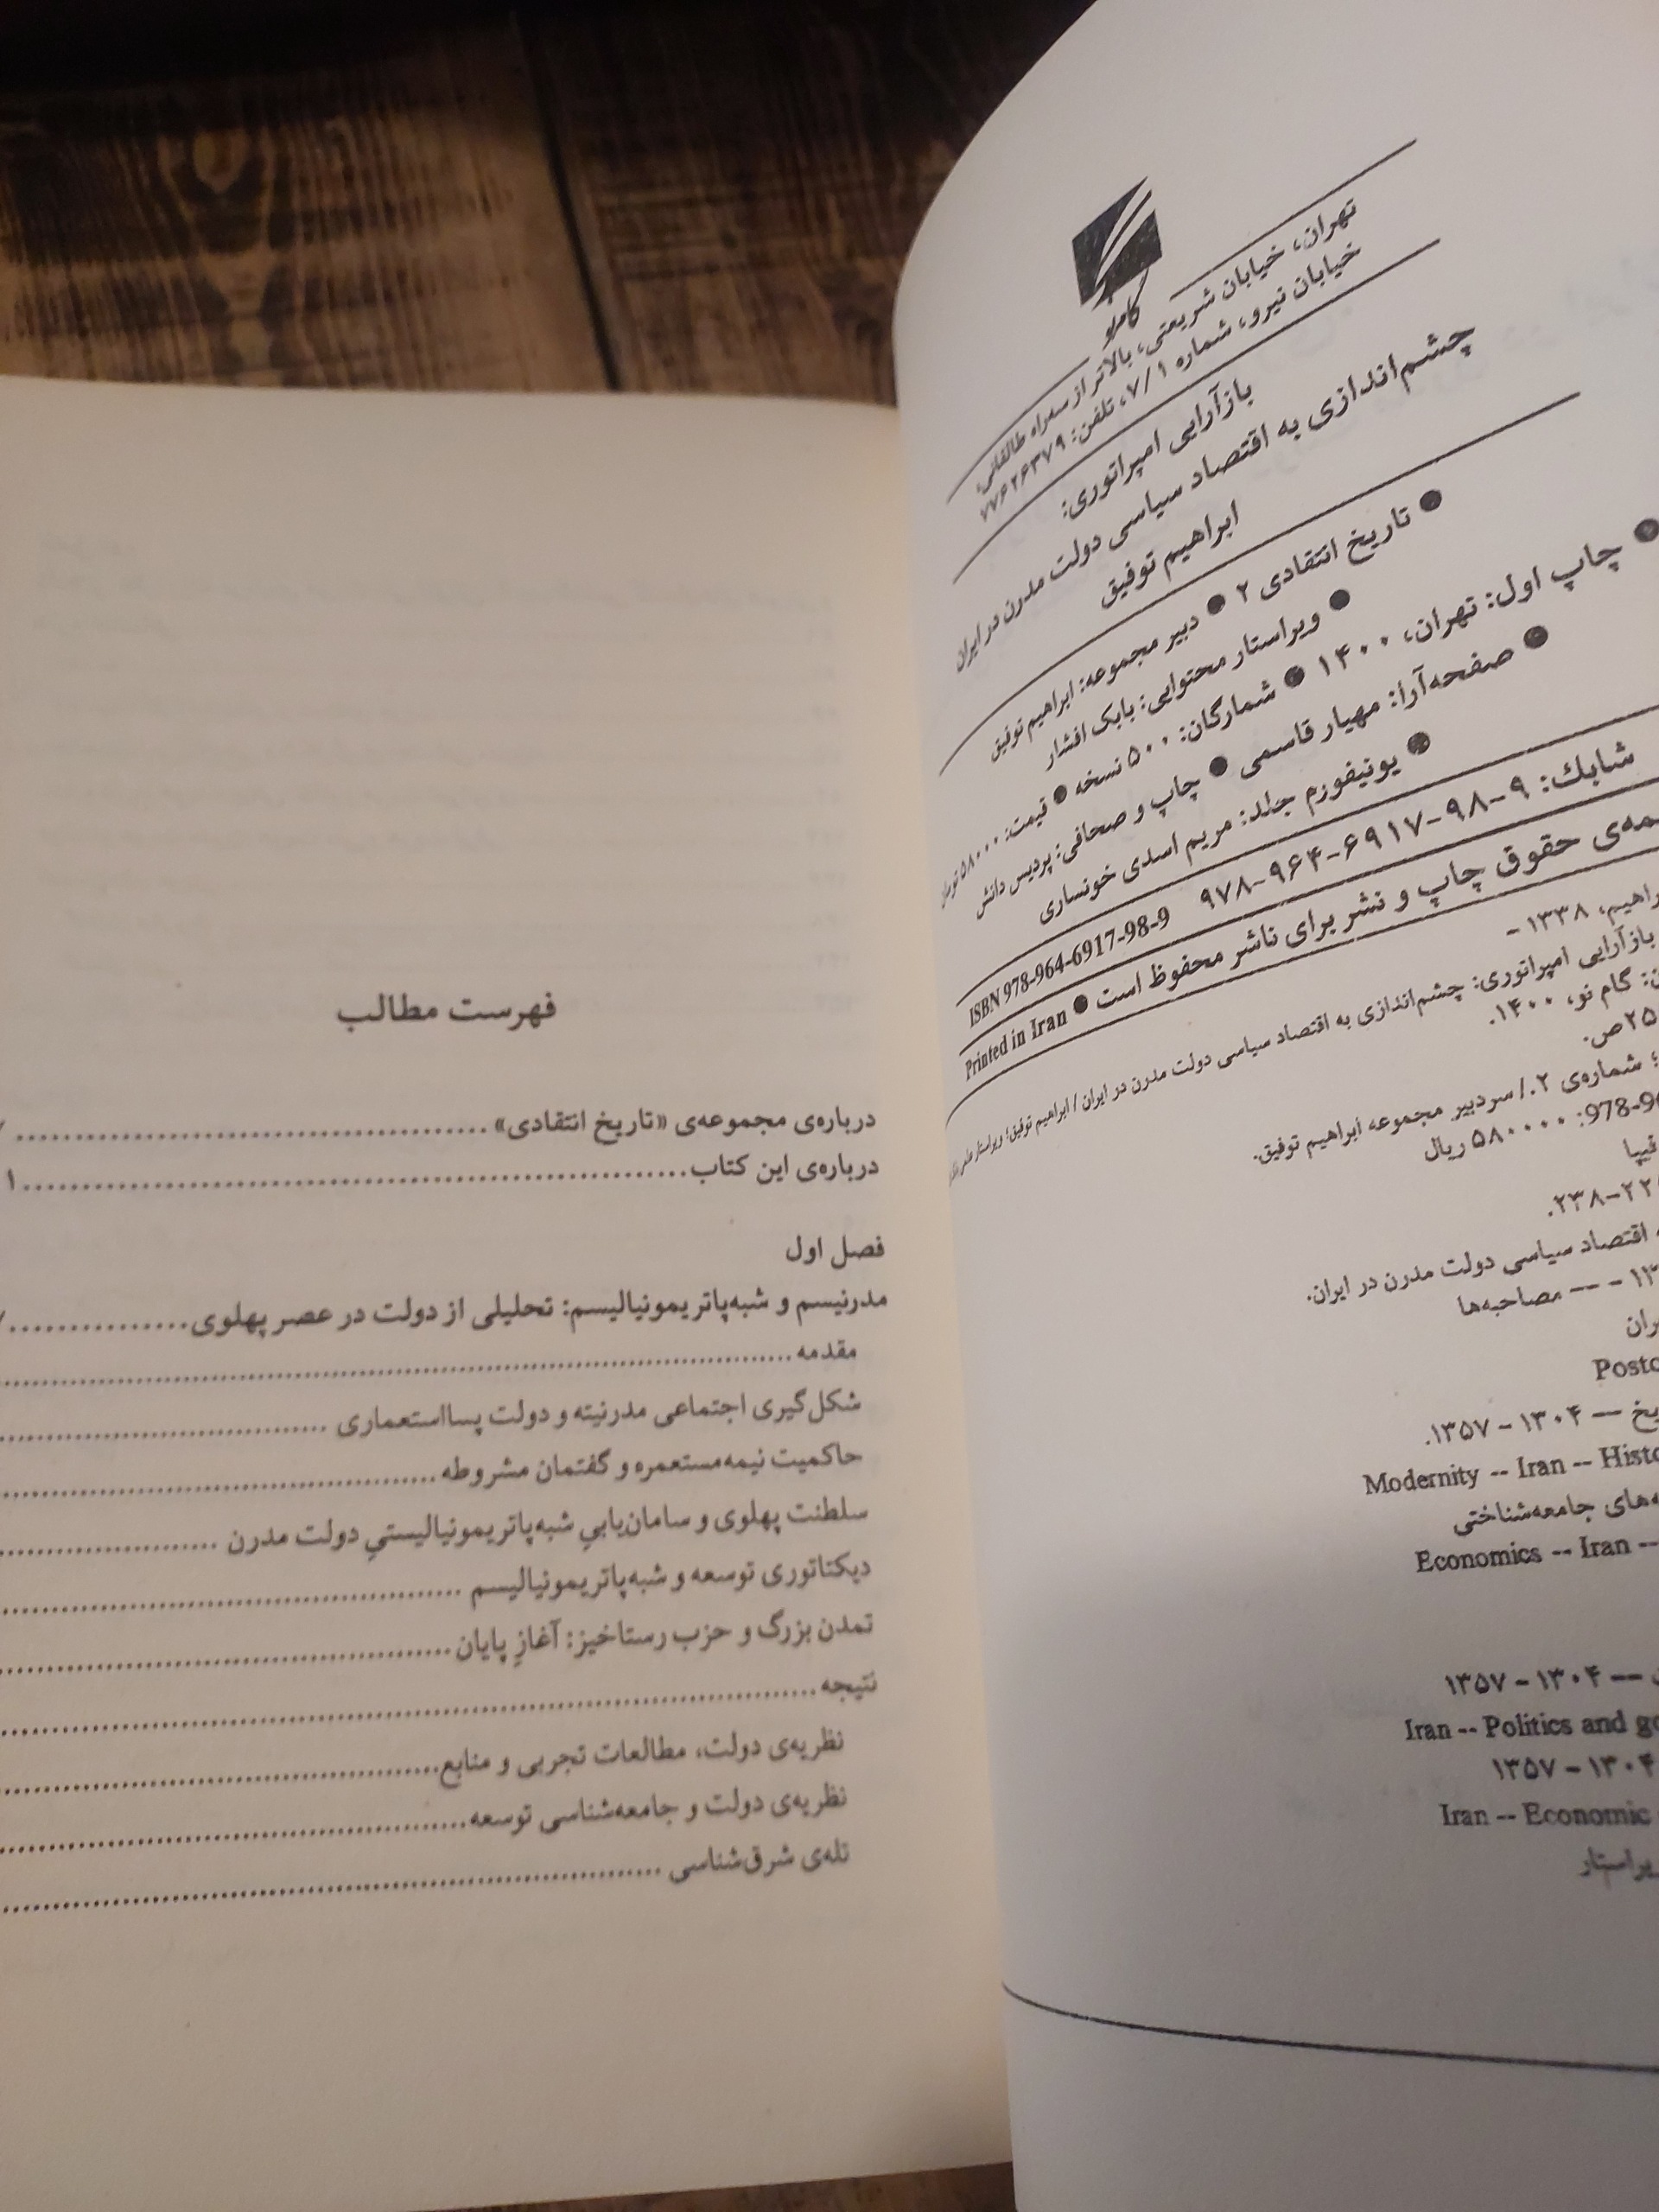 گام نو
تهران، خیابان شریعتی، بالاتر از سه‌راه طالقانی،
خیابان نیرو، شماره ۷/۱، تلفن: ۷۷۶۲۶۳۷۹
بازآرایی امپراتوری:
چشم‌اندازی به اقتصاد سیاسی دولت مدرن در ایران
ابراهیم توفیق
● تاریخ انتقادی ۲ ● دبیر مجموعه: ابراهیم توفیق
● ویراستار محتوایی: بابک افشار
● چاپ اول: تهران، ۱۴۰۰ ● شمارگان: ۵۰۰ نسخه ● قیمت: ۵۸۰۰۰ تومان
● صفحه‌آرا: مهیار قاسمی ● چاپ و صحافی: پردیس دانش
● یونیفورم جلد: مریم اسدی خونساری
شابك: ۹-۹۸-۶۹۱۷-۹۶۴-۹۷۸ ISBN 978-964-6917-98-9
حقوق چاپ و نشر برای ناشر محفوظ است ● Printed in Iran
۱۳۳۸ -
بازآرایی امپراتوری: چشم‌اندازی به اقتصاد سیاسی دولت مدرن در ایران / ابراهیم توفیق؛ ویراستار
گام نو، ۱۴۰۰.
ص.
؛ شماره‌ی ۲./ سردبیر مجموعه ابراهیم توفیق.
۵۸۰۰۰۰ ریال
فیپا
۲۳۸.
اقتصاد سیاسی دولت مدرن در ایران.
- -- مصاحبه‌ها
-- ۱۳۰۴ - ۱۳۵۷.
Modernity -- Iran --
جامعه‌شناختی
Economics -- Iran --
-- ۱۳۰۴ - ۱۳۵۷
Iran -- Politics and
۱۳۰۴ - ۱۳۵۷
Iran -- Economic
فهرست مطالب
درباره‌ی مجموعه‌ی «تاریخ انتقادی»
درباره‌ی این کتاب
فصل اول
مدرنیسم و شبه‌پاتریمونیالیسم: تحلیلی از دولت در عصر پهلوی
مقدمه
شکل‌گیری اجتماعی مدرنیته و دولت پسااستعماری
حاکمیت نیمه‌مستعمره و گفتمان مشروطه
سلطنت پهلوی و سامان‌یابیِ شبه‌پاتریمونیالیستیِ دولت مدرن
دیکتاتوری توسعه و شبه‌پاتریمونیالیسم
تمدن بزرگ و حزب رستاخیز: آغازِ پایان
نتیجه
نظریه‌ی دولت، مطالعات تجربی و منابع
نظریه‌ی دولت و جامعه‌شناسی توسعه
تله‌ی شرق‌شناسی